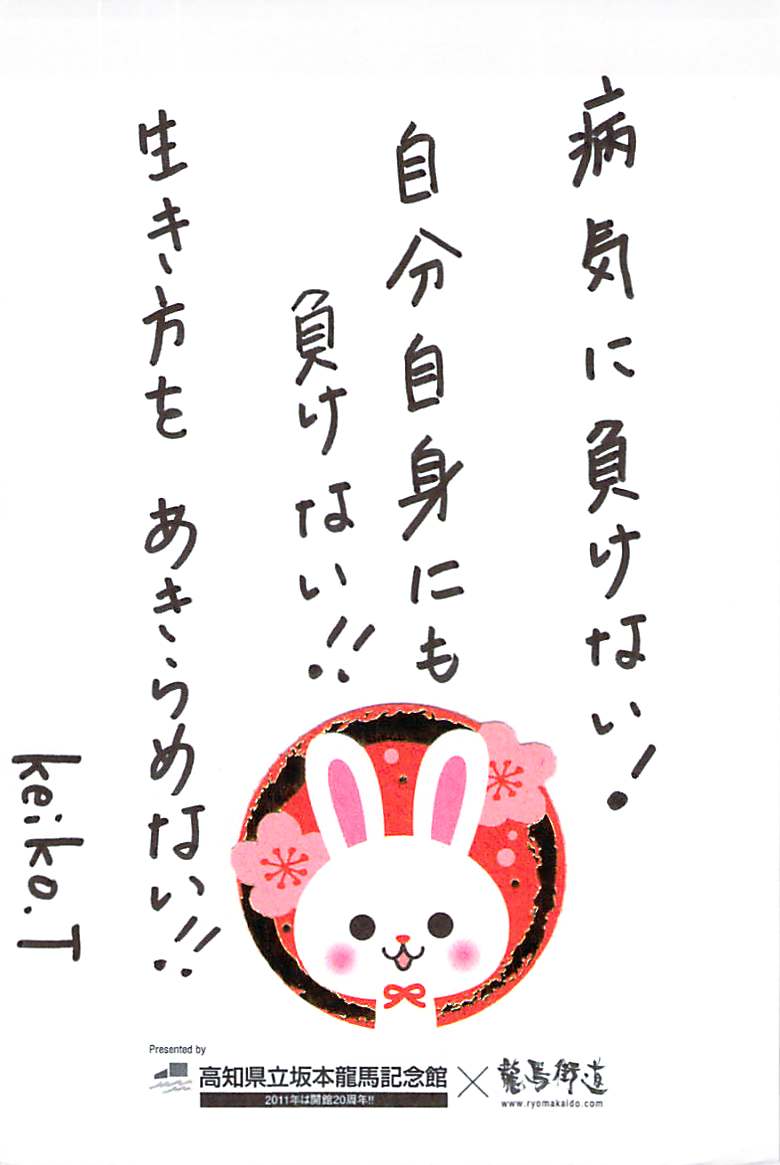 病気に負けない!
自分自身にも
負けない!!
生き方を あきらめない!!
keiko.T
Presented by
高知県立坂本龍馬記念館
2011年は開館20周年!!
×
龍馬街道
www.ryomakaido.com